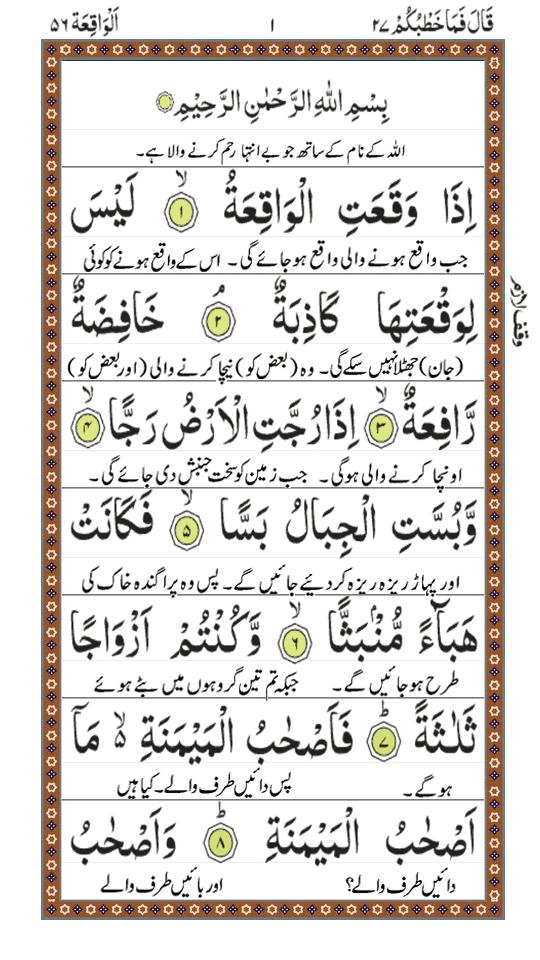 قَالَ فَمَا خَطْبُكُمْ ۲۷ ۱ اَلْوَاقِعَة ۵۶
بِسْمِ اللّٰهِ الرَّحْمٰنِ الرَّحِيْمِ
اللہ کے نام کے ساتھ جو بے انتہا رحم کرنے والا ہے۔
اِذَا وَقَعَتِ الْوَاقِعَةُ ۙ‏ ۱ لَيْسَ
جب واقع ہونے والی واقع ہو جائے گی۔ اس کے واقع ہونے کو کوئی
لِوَقْعَتِهَا كَاذِبَةٌ ۘ‏ ۲ خَافِضَةٌ
وقف لازم
(جان) جھٹلا نہیں سکے گی۔ وہ (بعض کو) نیچا کرنے والی (اور بعض کو)
رَّافِعَةٌ ۙ‏ ۳ اِذَا رُجَّتِ الْاَرْضُ رَجًّا ۙ‏ ۴
اونچا کرنے والی ہوگی۔ جب زمین کو سخت جنبش دی جائے گی۔
وَّبُسَّتِ الْجِبَالُ بَسًّا ۙ‏ ۵ فَكَانَتْ
اور پہاڑ ریزہ ریزہ کر دئیے جائیں گے۔ پس وہ پراگندہ خاک کی
هَبَآءً مُّنْۢبَثًّا ۙ‏ ۶ وَّكُنْتُمْ اَزْوَاجًا
طرح ہو جائیں گے۔ جبکہ تم تین گروہوں میں بٹے ہوئے
ثَلٰثَةً ؕ‏ ۷ فَاَصْحٰبُ الْمَيْمَنَةِ ۙ۬ مَاۤ
ہوگے۔ پس دائیں طرف والے۔ کیا ہیں
اَصْحٰبُ الْمَيْمَنَةِ ؕ‏ ۸ وَاَصْحٰبُ
دائیں طرف والے؟ اور بائیں طرف والے